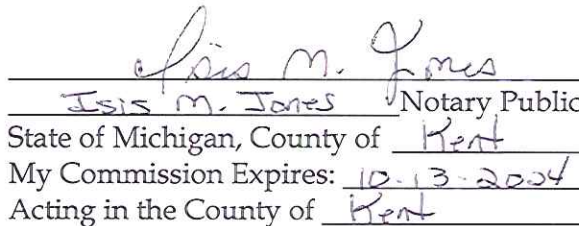 Isis M. Jones
Isis M. Jones Notary Public
State of Michigan, County of Kent
My Commission Expires: 10-13-2024
Acting in the County of Kent